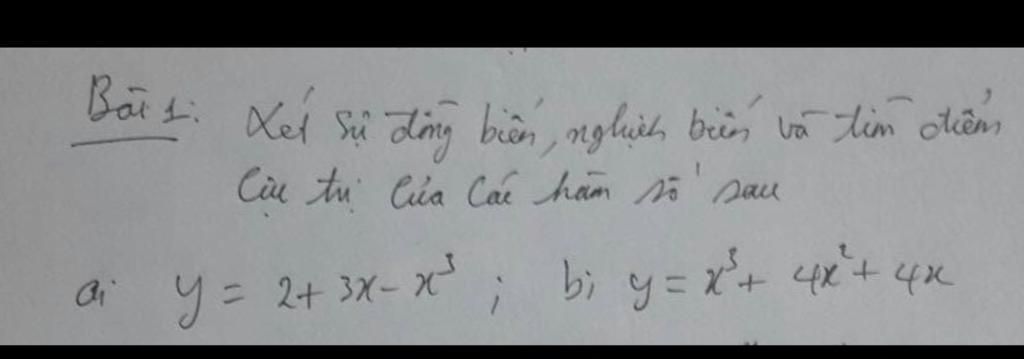 Bài 1: Xét sự đồng biến, nghịch biến và tìm điểm
cực trị của các hàm số sau
a; y = 2 + 3x - x³ ; b; y = x³ + 4x² + 4x